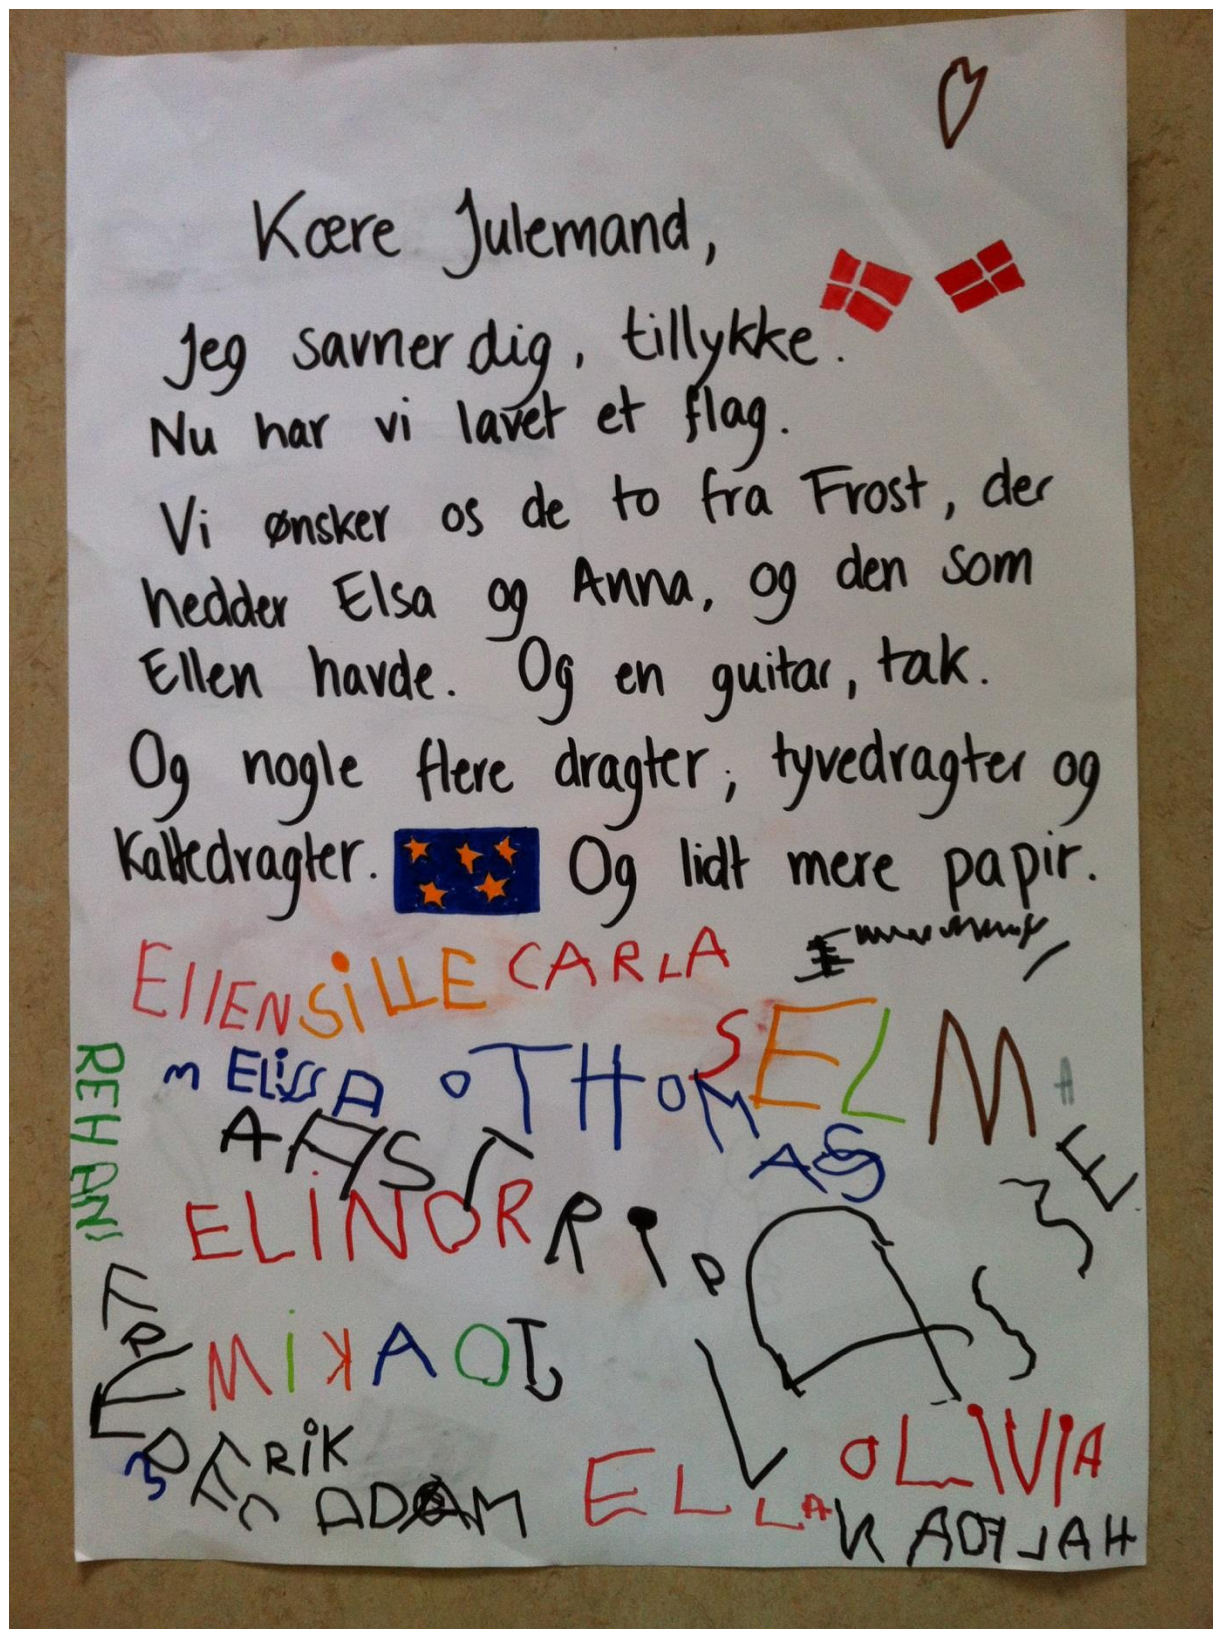 Kære Julemand,
Jeg savner dig, tillykke.
Nu har vi lavet et flag.
Vi ønsker os de to fra Frost, der
hedder Elsa og Anna, og den som
Ellen havde. Og en guitar, tak.
Og nogle flere dragter, tyvedragter og
Kattedragter. Og lidt mere papir.
EllEN SiLLE CARLA
SELMA
mELiSSA THOMAS
REHAN
ELiNOR
MiKAOJ
ERiK
ADAM
ELLA OLIVIA
KADIJAH